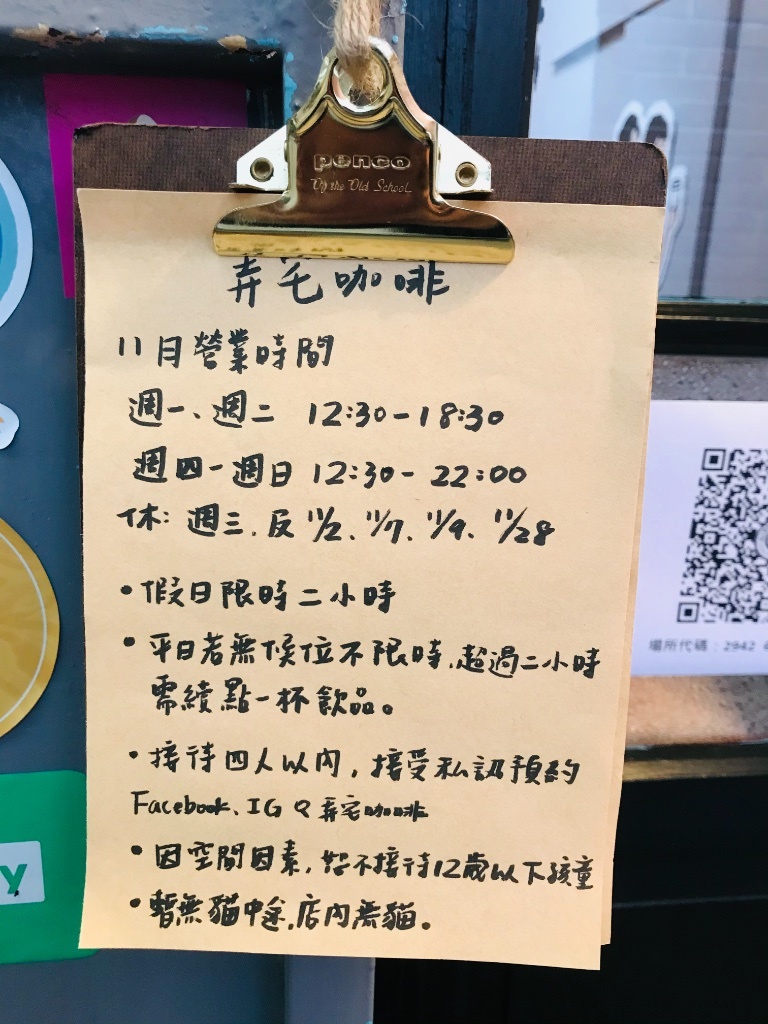 penco
Of the Old School
弄宅咖啡
11月營業時間
週一、週二 12:30-18:30
週四-週日 12:30-22:00
休: 週三, 及 11/2、11/7、11/9、11/28
•假日限時二小時
•平日若無候位不限時,超過二小時
需續點一杯飲品。
•接待四人以內, 接受私訊預約
Facebook、IG Q 弄宅咖啡
•因空間因素, 恕不接待12歲以下孩童
•暫無貓中途,店內無貓。
場所代碼:2942
y